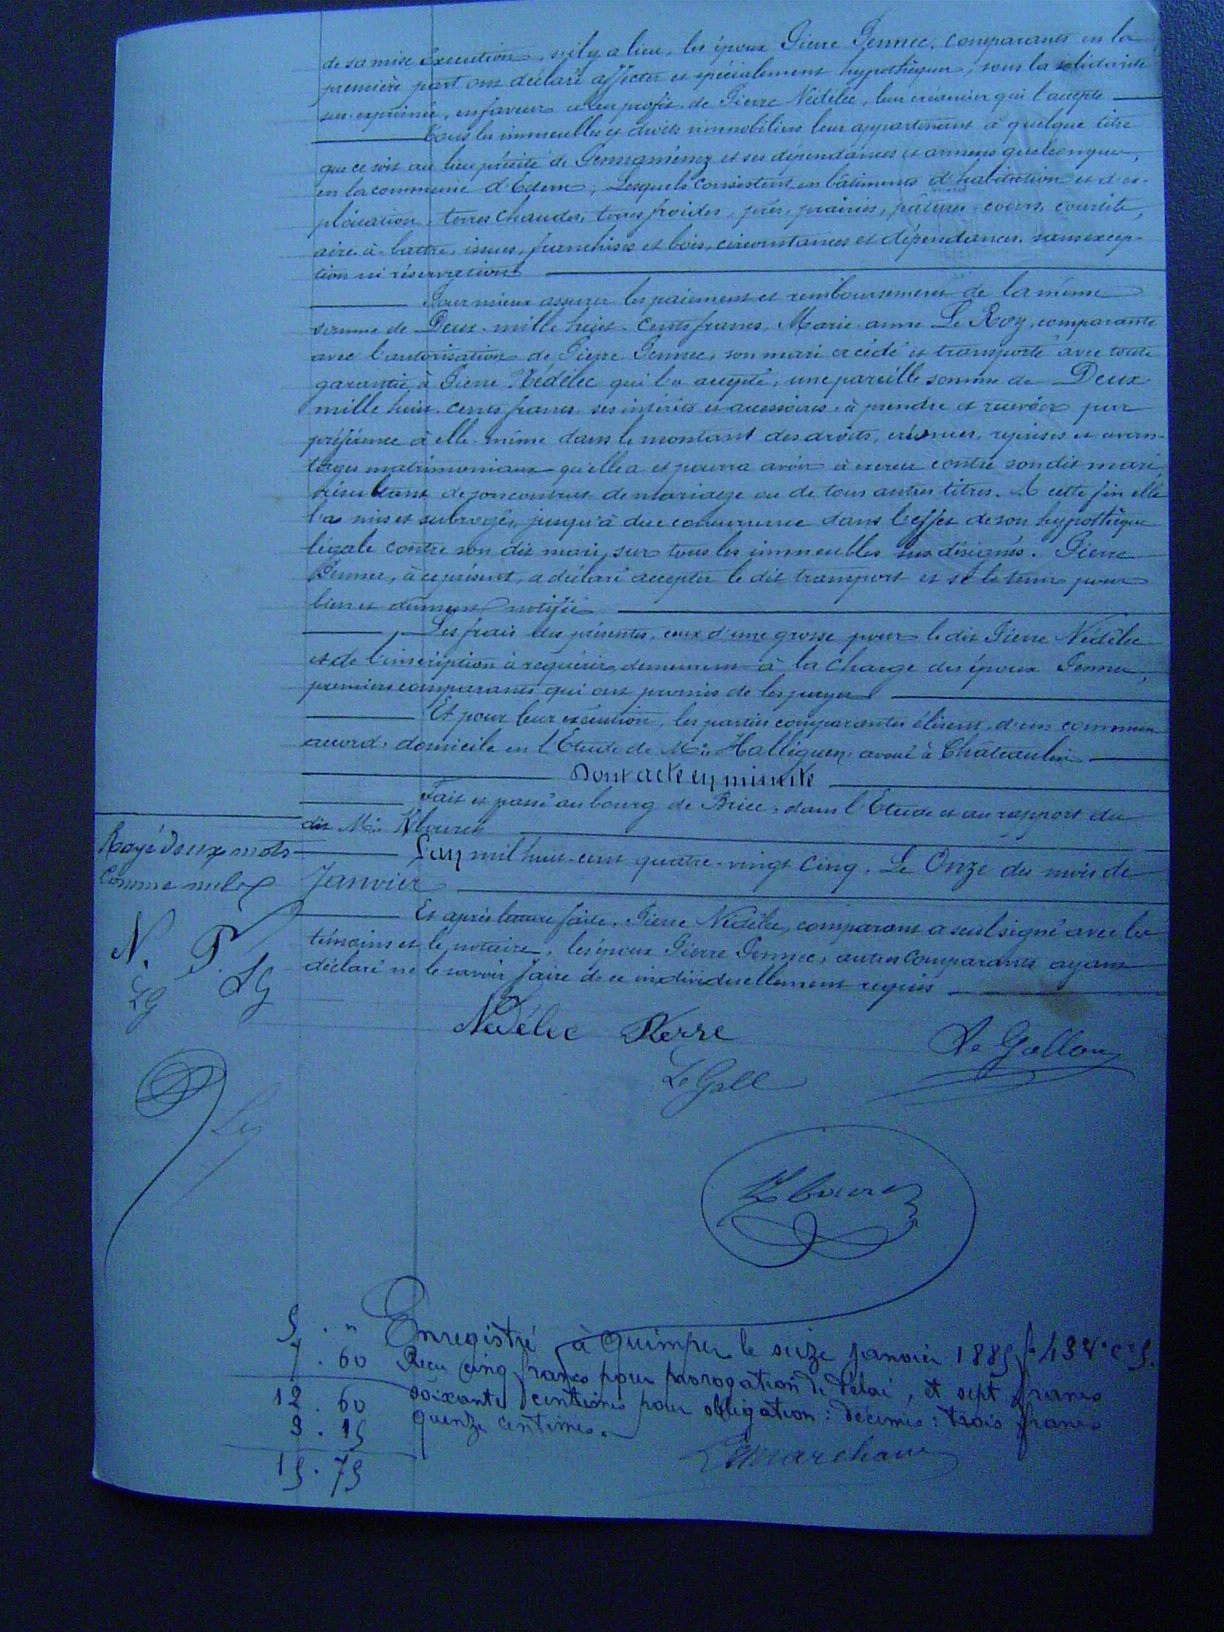 de sa mise Execution, s'il y a lieu, les époux Pierre Pennec, comparants en la
première part ont déclaré affecter et spécialement hypothéquer, sous la solidarité
sus-exprimée, en faveur et au profit de Pierre Nédélec, leur créancier qui l'accepte
Tous les immeubles et droits immobiliers leur appartenant à quelque titre
que ce soit au lieu précité de et ses dépendances et annexes quelconques,
en la commune d'Edern; Lesquels consistent en bâtiments d'habitation et d'ex-
ploitation, terres chaudes, terres froides, prés, prairies, pâtures, cours, courtils,
aire-à-battre, issues, franchises et bois, circonstances et dépendances, sans excep-
tion ni réservation
Pour mieux assurer les paiement et remboursement de la même
somme de Deux-mille huit-cents francs, Marie-anne Le Roy, comparante
avec l'autorisation de Pierre Pennec, son mari a cédé et transporté avec toute
garantie à Pierre Nédélec qui l'a accepté, une pareille somme de Deux-
mille huit-cents francs ses intérêts et accessoires, à prendre et recevoir par
préférence à elle-même dans le montant des droits, créances, reprises et avan-
tages matrimoniaux qu'elle a et pourra avoir à exercer contre son dit mari
résultant de son contrat de mariage ou de tous autres titres. A cette fin elle
l'a mis et subrogé, jusqu'à due concurrence dans l'effet de son hypothèque
légale contre son dit mari, sur tous les immeubles sus-désignés. Pierre
Pennec, à ce présent, a déclaré accepter le dit transport et se le tenir pour
bien et dûment notifié
Les frais des présentes, ceux d'une grosse pour le dit Pierre Nédélec
et de l'inscription à requérir, demeurent à la charge des époux Pennec,
premiers comparants qui ont promis de les payer
Et pour leur exécution, les parties comparantes élisent, d'un commun
accord, domicile en l'Etude de Me Halléguen, avoué à Châteaulin
Dont acte en minute
Fait et passé au bourg de Briec, dans l'Etude et au rapport du
dit Me
L'an mil huit-cent quatre-vingt cinq, Le Onze du mois de
Janvier
Et après lecture faite, Pierre Nédélec, comparant a seul signé avec les
témoins et le notaire, les époux Pierre Pennec, autres comparants ayant
déclaré ne le savoir faire de ce individuellement requis
Rayé deux mots
comme nuls
N. P.
LG LG
Nédélec Pierre
Le Gallou
Le Gall
5 . "
7 . 60
12 . 60
3 . 15
15 . 75
Enregistré à Quimper le seize janvier 1885 fo 43 Vo Ce 5.
Reçu cinq francs pour prorogation de délai, et sept francs
soixante centimes pour obligation : décimes : trois francs
quinze centimes.
Lemarchand